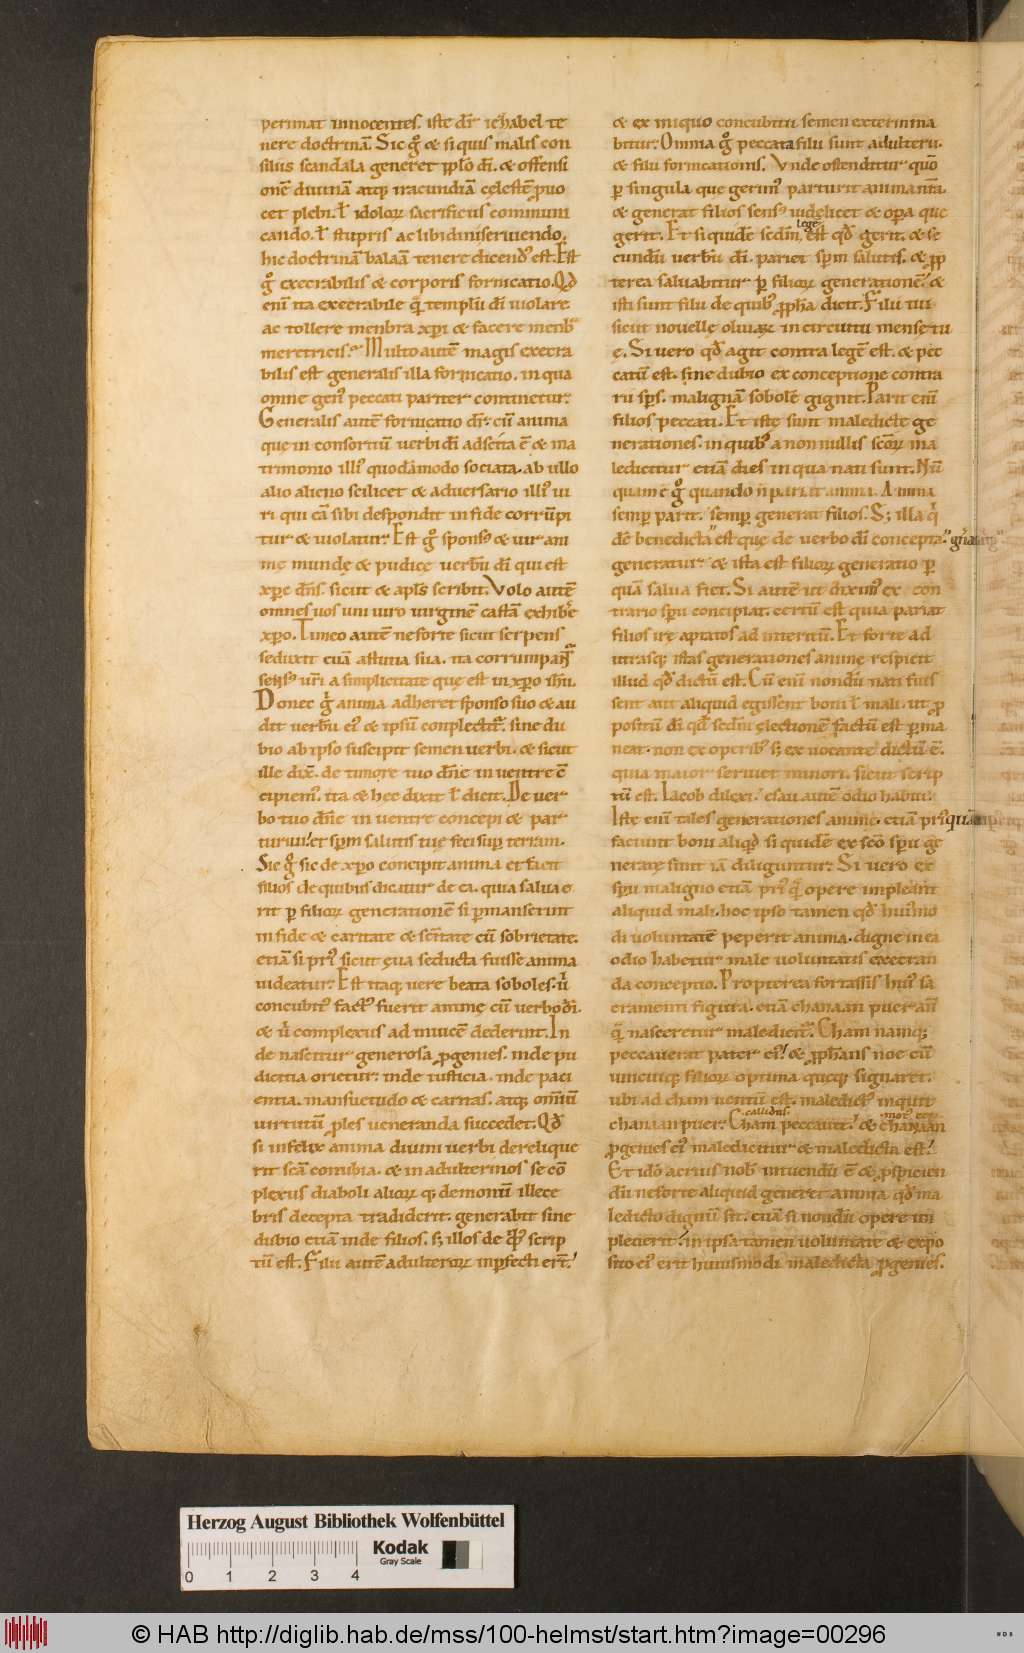 perimat innocentes. iste dr̄ iezabel te
nere doctrinā. Sic gͦ & si quis malis con
siliis scandala generet ppl̄o dī. & offensi
onē diuinā atq; iracundiā celestē ꝓuo
cet plebi. ł idoloꝝ sacrificiis communi
cando. ł stupris ac libidini seruiendo.
hic doctrinā balaā tenere dicend' est. Est
gͦ execrabilis & corporis fornicatio. Qđ
enī ita execrabile q̄ templū dī uiolare
ac tollere menbra xp̄i & facere menb̄
meretricis. Multo autē magis execra
bilis est generalis illa fornicatio. in qua
omne gen' peccati pariter continetur.
Generalis autē fornicatio dr̄. cū anima
que in consortiū uerbi dī adscita ē & ma
trimonio illi' quodāmodo sociata. ab ullo
alio alieno scilicet & aduersario illi' ui
ri qui eā sibi despondit in fide corrūpi
tur & uiolatur. Est gͦ spons' & uir ani
mę mundę & pudicę uerbū dī qui est
xp̄c dn̄s. sicut & apl̄s scribit. Volo autē
omnes uos uni uiro uirginē castā exhib'e
xp̄o. Timeo autē ne forte sicut serpens
seduxit euā astutia sua. ita corrumpant
sens' ur̄i a simplicitate quę est in xp̄o ih̄u.
Donec g̊ anima adheret sponso suo & au
dit uerbū ei' & ipsū conplectit̄. sine du
bio ab ipso suscipit semen uerbi. & sicut
ille dix̄. de timore tuo dn̄e in uentre c̄
cepim'. ita & hec dixit ł dicit. De uer
bo tuo dn̄e in uentre concepi & par
turiui. et spm̄ salutis tuę feci sup̄ terram.
Sic gͦ sic de xp̄o concipit anima et facit
filios de quibus dicatur de ea. quia salua e
rit ꝑ filioꝝ generationē si ꝑmanserint
in fide & caritate & sc̄itate cū sobrietate.
etiā si pri' sicut eua seducta fuisse anima
uideatur. Est itaq; uere beata soboles. u̇
concubit' fact' fuerit animę cū uerbo dī.
& u̇ complexus ad inuicē dederint. In
de nascitur generosa ꝓgenies. inde pu
dicitia orietur. inde iusticia. inde paci
entia. mansuetudo & caritas. atq; omniū
uirtutū ꝓles ueneranda succedet. Qđ
si infelix anima diuini uerbi derelique
rit sc̄ā conubia. & in adulterinos se cō
plexus diaboli alioꝝ q; demoniū illece
bris decepta tradiderit. generabit sine
dubio etiā inde filios. s; illos de qb' scrip
tū est. Filii autē adulteroꝝ inperfecti ert̄.
& ex iniquo concubitu semen extermina
bitur. Omnia gͦ peccata filii sunt adulterii.
& filii fornicationis. Vnde ostenditur quō
ꝑ singula que gerim' parturit anima nr̄a.
& generat filios sens' uidelicet & opa que
legē
gerit. Et si quidē sedm̄ est qđ gerit. & se
cundū uerbū dī. pariet spm̄ salutis. & ꝓp
terea saluabitur ꝑ filioꝝ generationē. &
isti sunt filii de quib' ꝓpha dicit. Filii tui
sicut nouellę oliuaꝝ in circuitu mensę tu
ę. Si uero qđ agit contra legē est. & pec
catū est. sine dubio ex conceptione contra
rii sps̄. malignā sobolē gignit. Parit enī
filios peccati. Et istę sunt maledictę ge
nerationes. in quib' a non nullis sc̄oꝝ ma
ledicitur etiā dies in qua nati sunt. Nū
quam ē gͦ quando n̄ pariat anima. Anima
semp̄ parit. semp̄ generat filios. S; illa q̇
dē benedicta est que de uerbo dī concepta
generatur & ista est filioꝝ generatio ꝑ
quā salua fiet. Si autē ut dixim' ex con
trario spū concipiat. certū est quia pariat
filios irę aptatos ad interitū. Et forte ad
utrasq; istas generationes animę respicit
illud qđ dictū est. Cū enī nondū nati fuis
sent aut aliquid egissent boni ł mali. ut ꝓ
positū dī qđ sedm̄ electionē factū est ꝑma
neat. non ex operib' s; ex uocante dictū ē.
quia maior seruiet minori. sicut scrip
tū est. Iacob dilexi. esau autē odio habui.
Istę enī tales generationes animę. etiā pri' quā
faciunt boni aliqđ si quidē ex sc̄o spū ge
neratę sunt iā diliguntur. Si uero ex
spū maligno etiā pri' q̄ opere impleant
aliquid mali. hoc ipso tamen qđ hui'mo
di uoluntatē peperit anima. digne in ea
odio habetur male uoluntatis execran
da conceptio. Propterea fortassis hui' sa
cramenti figura. etiā chanaan puer an̄
q̄ nasceretur maledicit̄. Cham namq;
peccauerat pater ei'. & ꝓphans noe cū
unicuiq; filioꝝ optima queq; signaret.
ubi ad cham uentū est. maledict' inquit
callidus. mot' eor̄
chanaan puer. Cham peccauit. & chanaan
ꝓgenies ei' maledicitur & maledicta est.
Et idō acrius nob' intuendū ē & ꝓspicien
dū ne forte aliquid generet anima qđ ma
ledicto dignū sit. etiā si nondū opere im
pleuerit. in ipsa tamen uoluntate & expo
sito ei' erit huiusmodi maledicta ꝓgenies.
Herzog August Bibliothek Wolfenbüttel
Kodak
Gray Scale
0 1 2 3 4
© HAB http://diglib.hab.de/mss/100-helmst/start.htm?image=00296